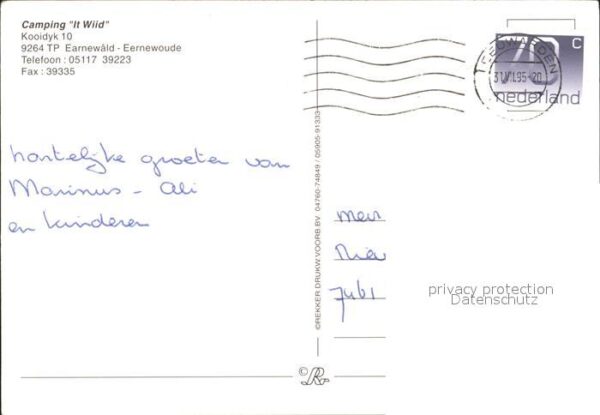 Camping "It Wiid"
Kooidyk 10
9264 TP Earnewâld - Eernewoude
Telefoon : 05117 39223
Fax : 39335
70 c
LEEUWARDEN
nederland
hartelijke groeten van
Marinus - Ali
en kinderen
©REKKER DRUKW.VOORB.BV. 04760-74849 / 05905-91333
privacy protection
Datenschutz
©R